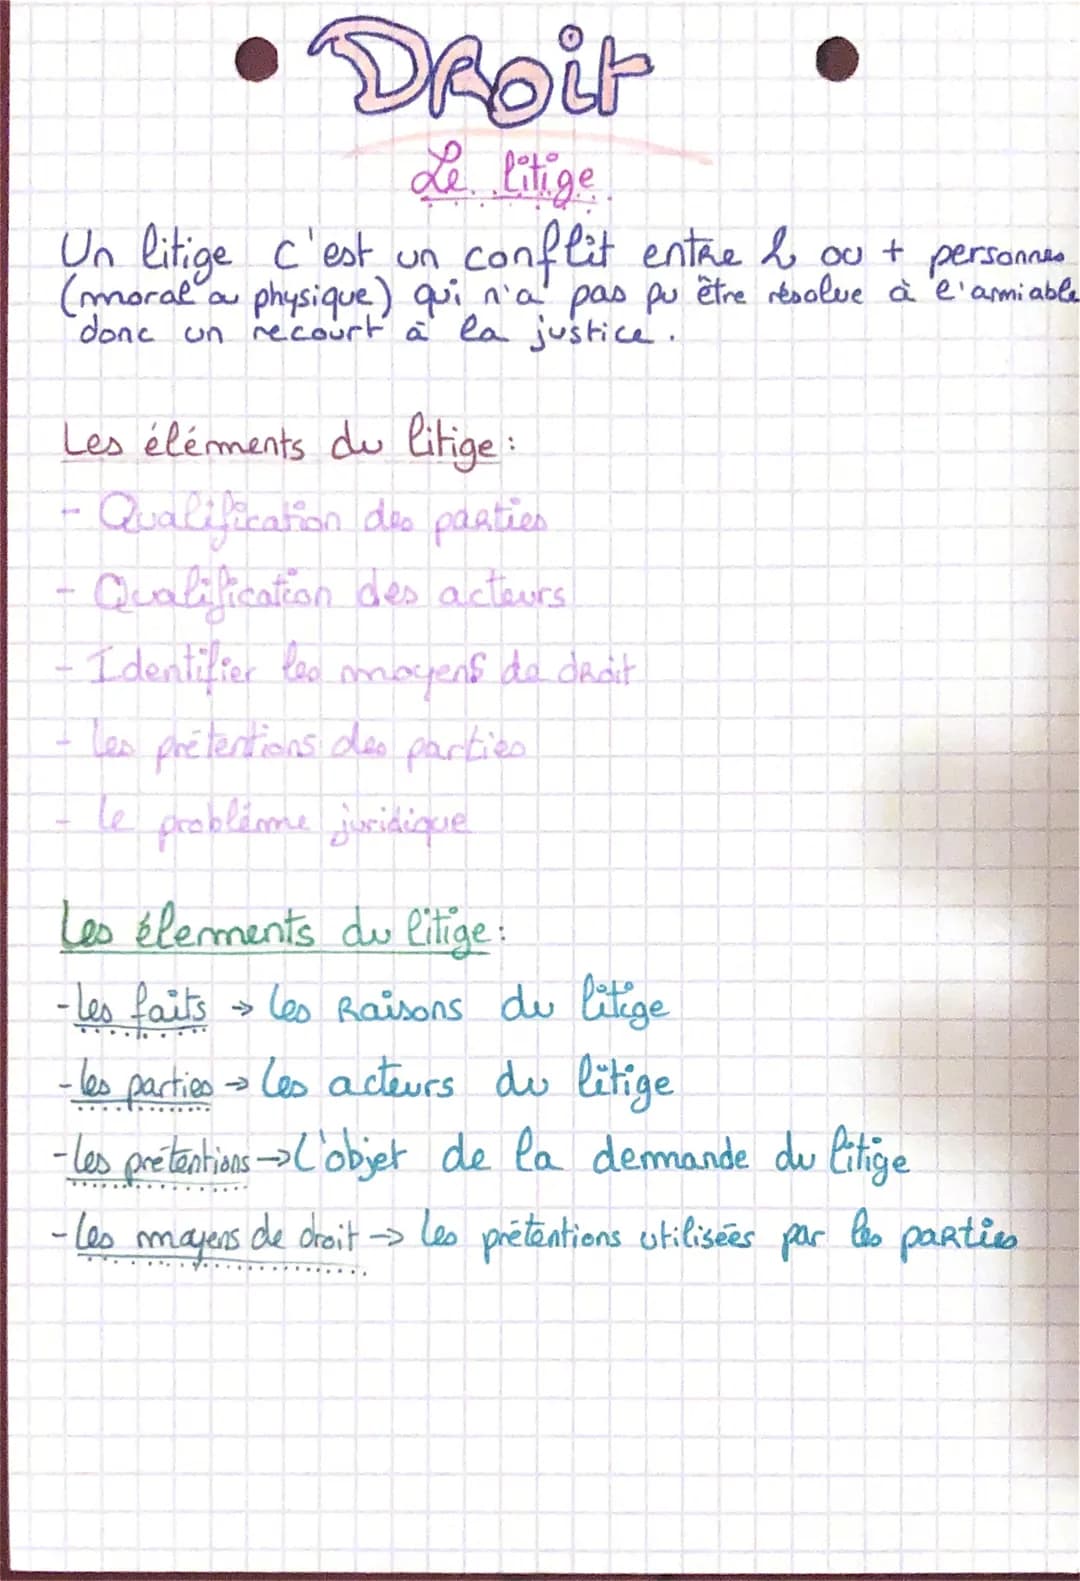 DRoit
Le litige
Un litige c'est un conflit entre 2 ou + personnes
(moral ou physique) qui n'a pas pu être résolue à l'armiable
donc un recourt à la justice.
Les éléments du litige:
- Qualification des parties
- Qualification des acteurs
- Identifier les moyens de droit
- les prétentions des parties
- le problème juridique
Les élements du litige:
-les faits → les Raisons du litige
-les parties → les acteurs du litige
-les prétentions → L'objet de la demande du litige
-les moyens de droit → les prétentions utilisées par les parties